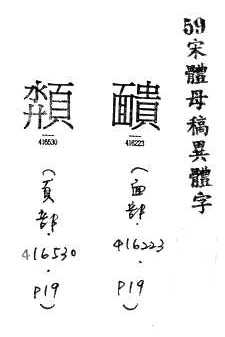 59宋體母稿異體字
靧
416223
（面部．416223．P19）
頮
416530
（頁部．416530．P19）